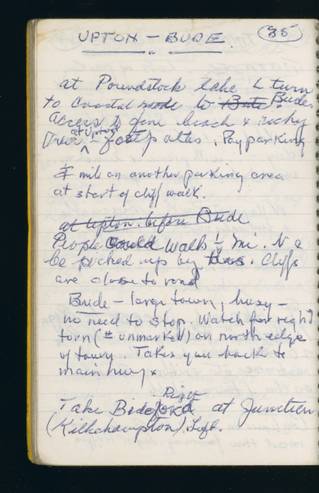 UPTON - BUDE
35
at Poundstock take L turn
to coastal to Bude
Access to fine beach & rocky
at Upton
footpaths. Pay parking
½ mi on another parking area
at start of cliff walk.
at Upton. before Bude
People could walk ½ mi. N &
be picked up by bus. Cliffs
are close to road
Bude - large town, busy -
no need to stop. Watch for right
turn (± unmarked) on north edge
of town. Takes you back to
main hwy.
Take Bideford Right at Junction
(Kilkhampton). Left.